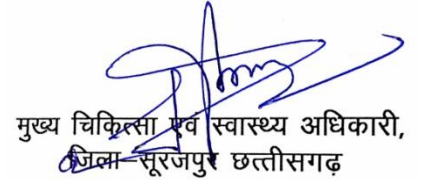 मुख्य चिकित्सा एवं स्वास्थ्य अधिकारी,
जिला–सूरजपुर छत्तीसगढ़